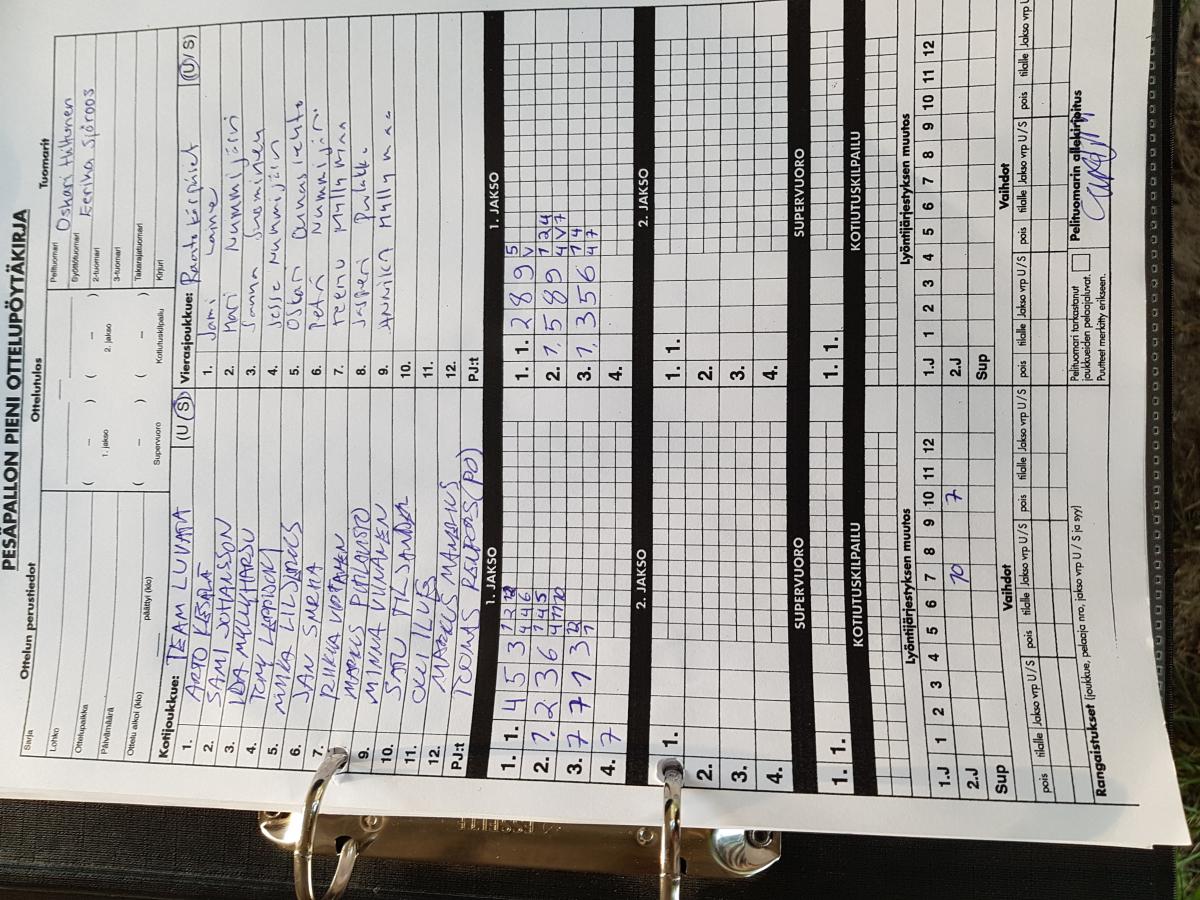 PESÄPALLON PIENI OTTELUPÖYTÄKIRJA
Ottelun perustiedot
Ottelutulos
Tuomarit
Sarja
Lohko
Ottelupaikka
Päivämäärä
Ottelu alkoi (klo) päättyi (klo)
( – ) ( – )
1. jakso 2. jakso
( – ) ( – )
Supervuoro Kotiutuskilpailu
Pelituomari Oskari Hiltunen
Syöttötuomari Eerika Sjöroos
2-tuomari
3-tuomari
Takarajatuomari
Kirjuri
Kotijoukkue: TEAM LUVATA (U/S)
1. ARTO KESÄLÄ
2. SAMI JOHANSSON
3. IDA MYLLYHARJU
4. TOMI
5. MIKA LILJEROOS
6. JAN SMEHA
7. RIIKKA VIRTANEN
MARKUS
9. MINNA VIINANEN
10. SATU TILJANDER
11. OLLI ILVES
12. MARKUS
PJ:t TOOMAS (PO)
Vierasjoukkue: Raatokärpäset (U/S)
1. Jami Laine
2. Mari Nummijärvi
3. Sanna Suominen
4. Jesse Nummijärvi
5. Oskari
6. Petri Nummijärvi
7. Teemu Myllymaa
8. Jasperi Pulakka
9. ANNIKA Myllymaa
10.
11.
12.
PJ:t
1. JAKSO 1. JAKSO
1. 1. 4 5 3 1 2 12
4 4 6
2. 1, 2 3 6 1 4 5
4 11 10
3. 7 7 1 3 12
1
4. 7
1. 1. 2 8 9 5
V
2. 1, 5 8 9 1 2 4
4 V 7
3. 1, 3 5 6 1 4
4 7
4.
2. JAKSO 2. JAKSO
1. 1. 1. 1.
2. 2.
3. 3.
4. 4.
SUPERVUORO SUPERVUORO
1. 1. 1. 1.
KOTIUTUSKILPAILU KOTIUTUSKILPAILU
Lyöntijärjestyksen muutos Lyöntijärjestyksen muutos
1.J 1 2 3 4 5 6 7 8 9 10 11 12 1.J 1 2 3 4 5 6 7 8 9 10 11 12
2.J 10 7 2.J
Sup Sup
Vaihdot Vaihdot
pois tilalle Jakso vrp U/S pois tilalle Jakso vrp U/S pois tilalle Jakso vrp U/S pois tilalle Jakso vrp U/S pois tilalle Jakso vrp U/S pois tilalle Jakso vrp U
Rangaistukset (joukkue, pelaaja nro, jakso vrp U / S ja syy)
Pelituomari tarkastanut
joukkueiden pelaajaluvat.
Puutteet merkitty erikseen.
Pelituomarin allekirjoitus